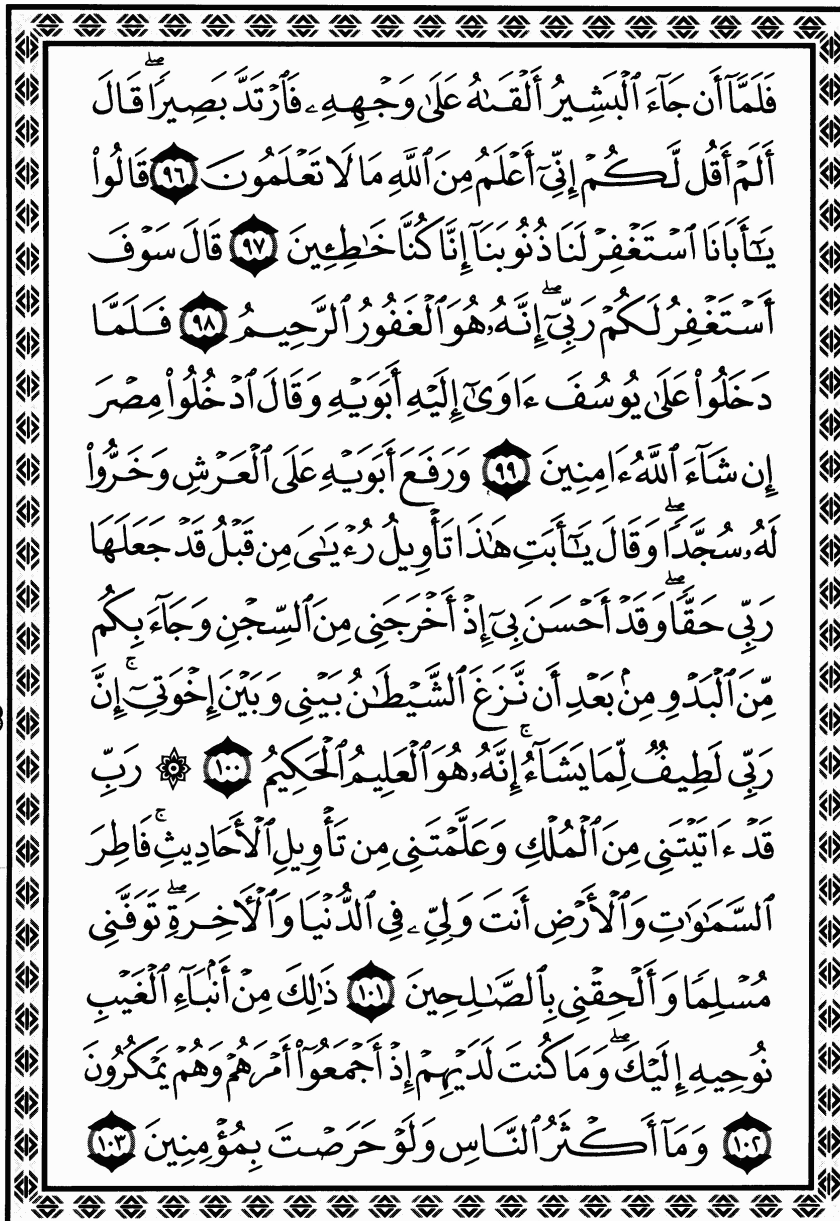 فَلَمَّآ أَن جَآءَ ٱلْبَشِيرُ أَلْقَىٰهُ عَلَىٰ وَجْهِهِۦ فَٱرْتَدَّ بَصِيرًاۖ قَالَ
أَلَمْ أَقُل لَّكُمْ إِنِّىٓ أَعْلَمُ مِنَ ٱللَّهِ مَا لَا تَعْلَمُونَ ٩٦ قَالُوا۟
يَـٰٓأَبَانَا ٱسْتَغْفِرْ لَنَا ذُنُوبَنَآ إِنَّا كُنَّا خَـٰطِـِٔينَ ٩٧ قَالَ سَوْفَ
أَسْتَغْفِرُ لَكُمْ رَبِّىٓۖ إِنَّهُۥ هُوَ ٱلْغَفُورُ ٱلرَّحِيمُ ٩٨ فَلَمَّا
دَخَلُوا۟ عَلَىٰ يُوسُفَ ءَاوَىٰٓ إِلَيْهِ أَبَوَيْهِ وَقَالَ ٱدْخُلُوا۟ مِصْرَ
إِن شَآءَ ٱللَّهُ ءَامِنِينَ ٩٩ وَرَفَعَ أَبَوَيْهِ عَلَى ٱلْعَرْشِ وَخَرُّوا۟
لَهُۥ سُجَّدًاۖ وَقَالَ يَـٰٓأَبَتِ هَـٰذَا تَأْوِيلُ رُءْيَـٰىَ مِن قَبْلُ قَدْ جَعَلَهَا
رَبِّى حَقًّاۖ وَقَدْ أَحْسَنَ بِىٓ إِذْ أَخْرَجَنِى مِنَ ٱلسِّجْنِ وَجَآءَ بِكُم
مِّنَ ٱلْبَدْوِ مِنۢ بَعْدِ أَن نَّزَغَ ٱلشَّيْطَـٰنُ بَيْنِى وَبَيْنَ إِخْوَتِىٓۚ إِنَّ
رَبِّى لَطِيفٌ لِّمَا يَشَآءُۚ إِنَّهُۥ هُوَ ٱلْعَلِيمُ ٱلْحَكِيمُ ١٠٠ ۞ رَبِّ
قَدْ ءَاتَيْتَنِى مِنَ ٱلْمُلْكِ وَعَلَّمْتَنِى مِن تَأْوِيلِ ٱلْأَحَادِيثِۚ فَاطِرَ
ٱلسَّمَـٰوَٰتِ وَٱلْأَرْضِ أَنتَ وَلِىِّۦ فِى ٱلدُّنْيَا وَٱلْـَٔاخِرَةِۖ تَوَفَّنِى
مُسْلِمًا وَأَلْحِقْنِى بِٱلصَّـٰلِحِينَ ١٠١ ذَٰلِكَ مِنْ أَنۢبَآءِ ٱلْغَيْبِ
نُوحِيهِ إِلَيْكَۖ وَمَا كُنتَ لَدَيْهِمْ إِذْ أَجْمَعُوٓا۟ أَمْرَهُمْ وَهُمْ يَمْكُرُونَ
١٠٢ وَمَآ أَكْثَرُ ٱلنَّاسِ وَلَوْ حَرَصْتَ بِمُؤْمِنِينَ ١٠٣